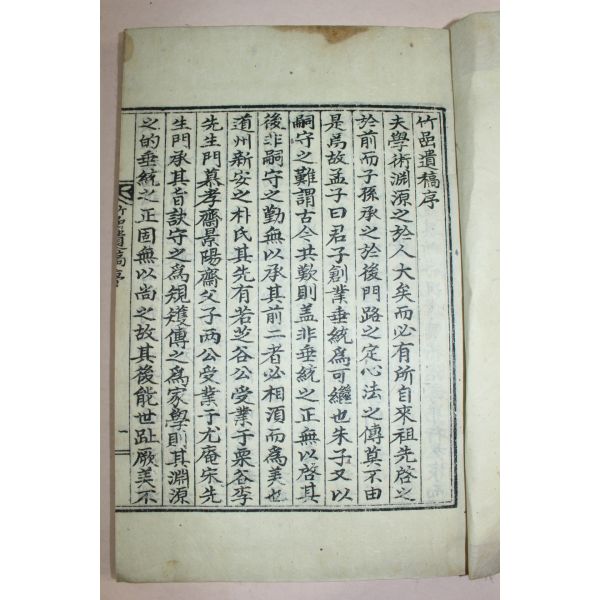 竹嵒遺稿序
夫學術淵源之於人大矣而必有所自來祖先啓之
於前而子孫承之於後門路之定心法之傳莫不由
是焉故孟子曰君子創業垂統爲可繼也朱子又以
嗣守之難謂古今共歎則盖非垂統之正無以啓其
後非嗣守之勤無以承其前二者必相須而爲美也
道州新安之朴氏其先有若芝谷公受業于栗谷李
先生門慕孝齋景陽齋父子兩公受業于尤庵宋先
生門承其旨訣守之爲規矱傳之爲家學則其淵源
之的垂統之正固無以尚之故其後能世趾厥美不
竹嵒遺稿序
一